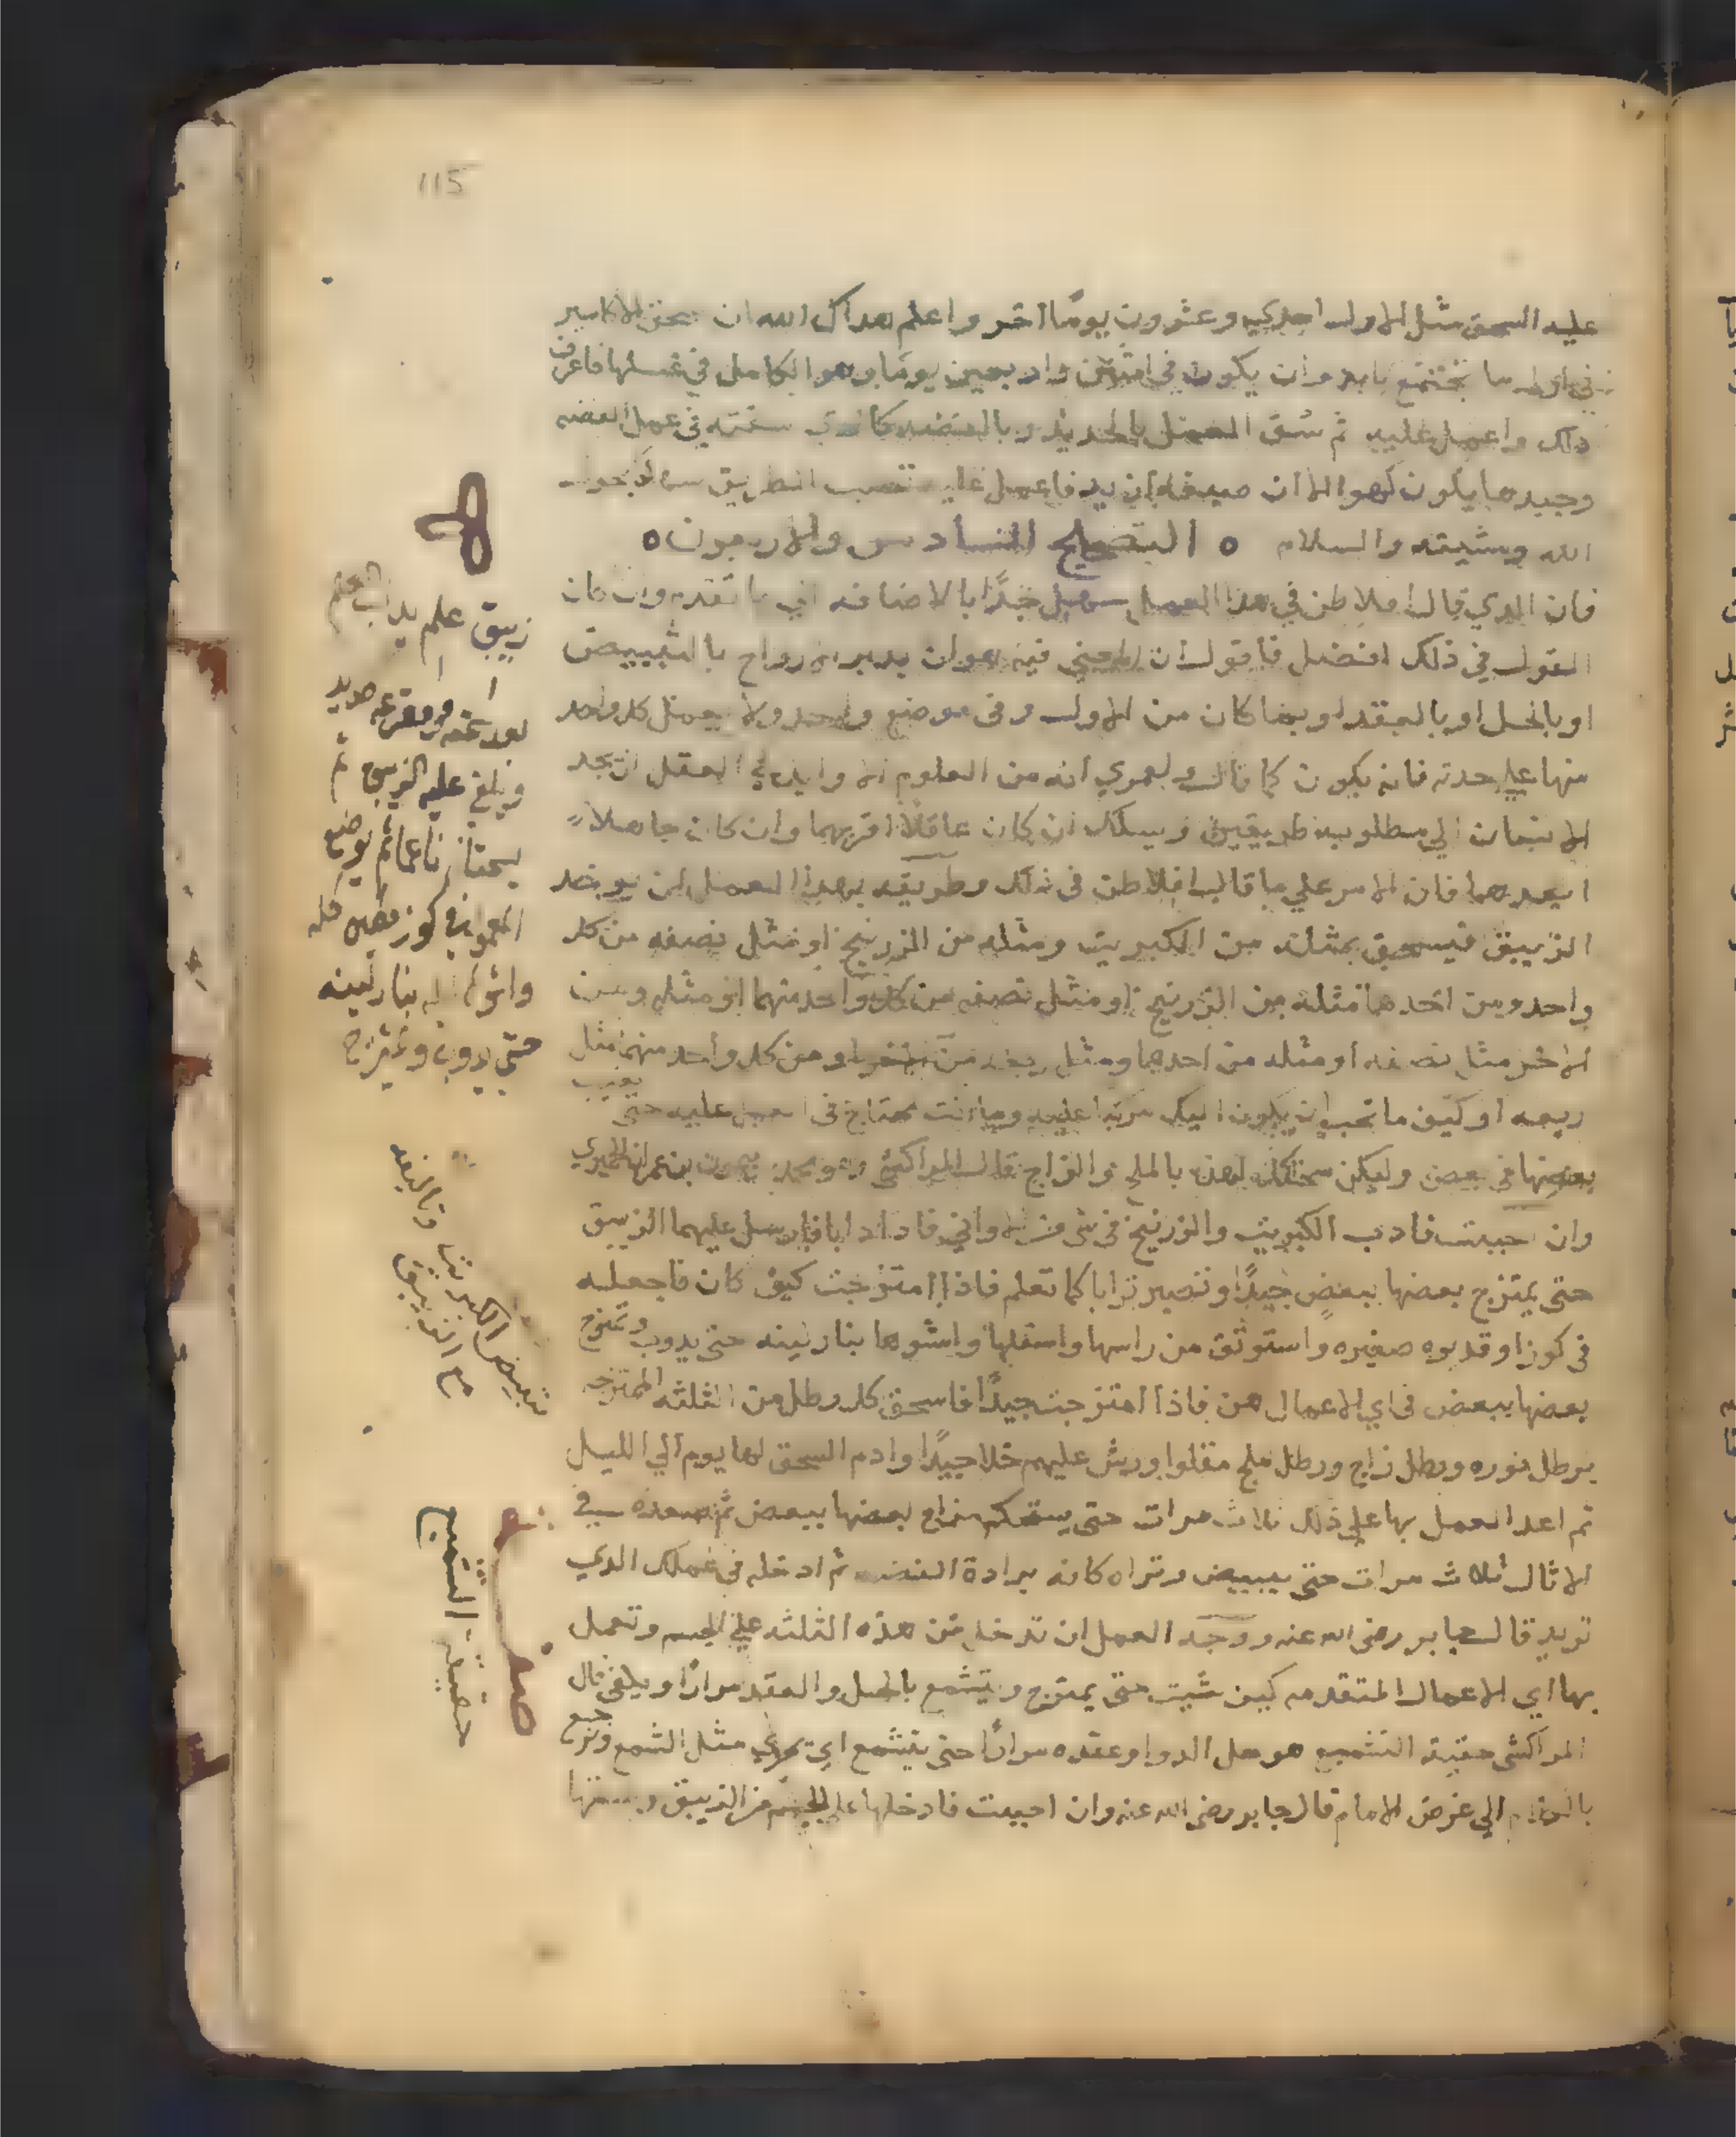 115
عليه السحق مثل الاول احدي وعشرون يوما اخر واعلم هداك الله ان سحق الاكاسير
يكون في اثنين واربعين يوما وهو الكامل في غسلها فاعرف
ذلك واعمل عليه ثم سق العمل بالحديد وبالفضه في عمل الفضه
وجيدها يكون كهو الا ان فاعمل عليه تصب الطريق بحول
الله ومشيته والسلام ٥ التصحيح السادس والاربعون ٥
فان الذي قال افلاطن في هذا العمل سهل جدا بالاضافه الي ما تقدم وان كان
القول في ذلك افضل فاقول ان المعني فيه هو ان يدبر الارواح بالتبييض
او بالحل او بالعقد او بما كان من الاول وفي موضع واحد ولا يعمل كل واحد
منها علي حدته فانه يكون كما قال ولعمري انه من العلوم الاوايل في العقل ان يجد
الانسان الي مطلوبه طريقين فيسلك ان كان عاقلا اقربهما وان كان جاهلا
ابعدهما فان الامر علي ما قال افلاطن في ذلك وطريقه هذا العمل ان يوخذ
الزيبق فيسحق بمثله من الكبريت ومثله من الزرنيخ او مثل نصفه من كل
واحد ومن احدهما مثله من الزرنيخ او مثل نصفه من كل واحد منهما او مثله ومن
الاخر مثل نصفه او مثله من احدهما ومثل ربعه من الاخر او من كل واحد منهما مثل
ربعه او كيف ما تحب ان يكون اليك وما انت محتاج في العمل عليه حتي يغيب
بعضها في بعض وليكن سحقك لهذه بالملح والزاج قال المراكشي وهو محمد بن ميمون بن عمران الحميري
وان احببت فاذب الكبريت والزرنيخ في شي من الاواني فاذا ذابا فارسل عليهما الزيبق
حتي يمتزج بعضها ببعض جيدا وتصير ترابا كما تعلم فاذا امتزجت كيف كان فاجعله
في كوز او قدوره صغيره واستوثق من راسها واسفلها واشوها بنار لينه حتي يدوب وتمتزج
بعضها ببعض في اي الاعمال هن فاذا امتزجت جيدا فاسحق كل رطل من الثلثه الممتزجه
برطل نوره ورطل زاج ورطل ملح مقلوا ورش عليهم خلا جيدا وادم السحق لها يوم الي الليل
ثم اعد العمل بها علي ذلك ثلاث مرات حتي يستحكم مزاج بعضها ببعض ثم صعده في
الاثال ثلاث مرات حتي يبيض وتراه كانه برادة الفضه ثم ادخله في عملك الذي
تريد قال جابر رضي الله عنه ووجه العمل ان تدخل من هذه الثلثه علي الجسم وتعمل
بها اي الاعمال المتقدمه كيف شيت حتي يمتزج ويتشمع بالحل والعقد مرارا ويلغي قال
المراكشي حقيقة التشميع هو حل الدوا وعقده مرارا حتي يتشمع اي يجري مثل الشمع ونرجع
بالكلام الي غرض الامام قال جابر رضي الله عنه وان احببت فادخلها علي الجسم من الزيبق
زيبق علم يداب العلم
بعد عقد ومغرفه حديد
ويلغي عليه الزيبق ثم
يسحقا ناعما ثم يوضع
في كوز فخار
بنار لينه
حتي يدوب ويمتزج
تبييض الكبريت وتاليفه
مع الزيبق
صفه
حقيقة التشميع